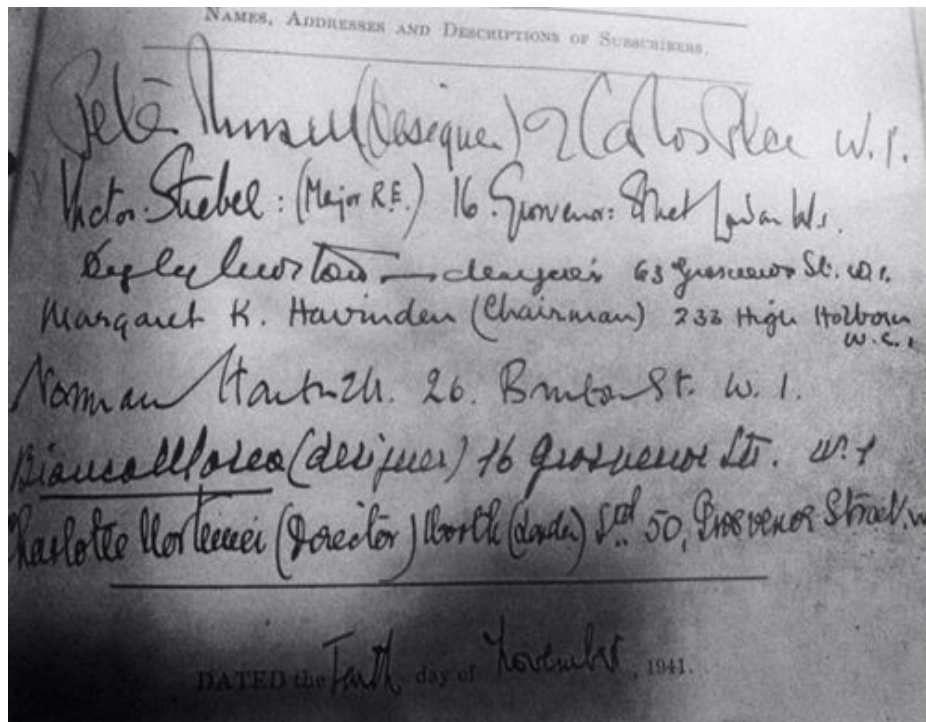 NAMES, ADDRESSES AND DESCRIPTIONS OF SUBSCRIBERS.
Peter Russell (Designer) 2 Carlos Place W.1.
Victor Stiebel : (Major R.E.) 16. Grosvenor: Street London W1.
Digby Morton — designer 63 Grosvenor St. W.1.
Margaret K. Havinden (Chairman) 233 High Holborn
W.C.1
Norman Hartnell. 26. Bruton St. W. 1.
Bianca Mosca (designer) 16 Grosvenor Str. W.1
Charlotte Mortimer (Director) Worth (London) Ltd. 50, Grosvenor Street.
DATED the Tenth day of November, 1941.